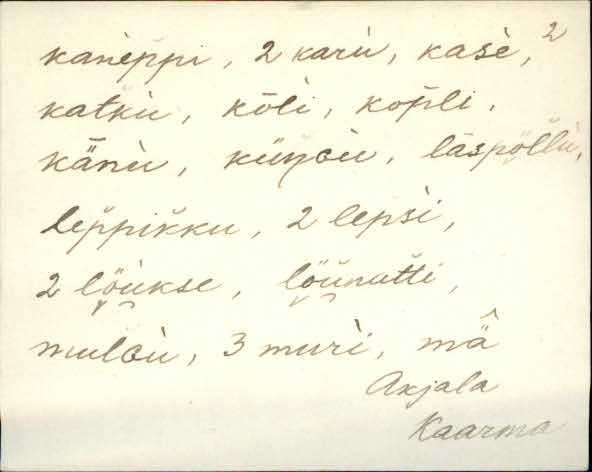 2
kanèppi, 2 karù, kasè,
katkù, kōli, kop̄li,
kǟnù, küŋᴅù, lāspȯ̈llù,
lep̆pikku, 2 lepsì,
2 lö̬ùkse, lö̬ünatti,
mulᴅù, 3 murì, mä̂
Axjala
Kaarma